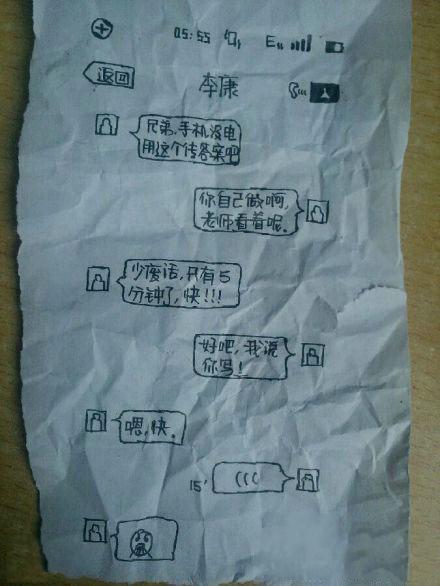 05:55 E
返回
李康
兄弟,手机没电
用这个传答案吧
你自己做啊,
老师看着呢.
少废话,只有5
分钟了,快!!!
好吧,我说
你写!
嗯,快.
15' (((